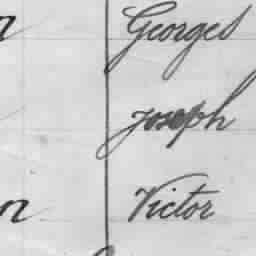 Georges
Joseph
Victor